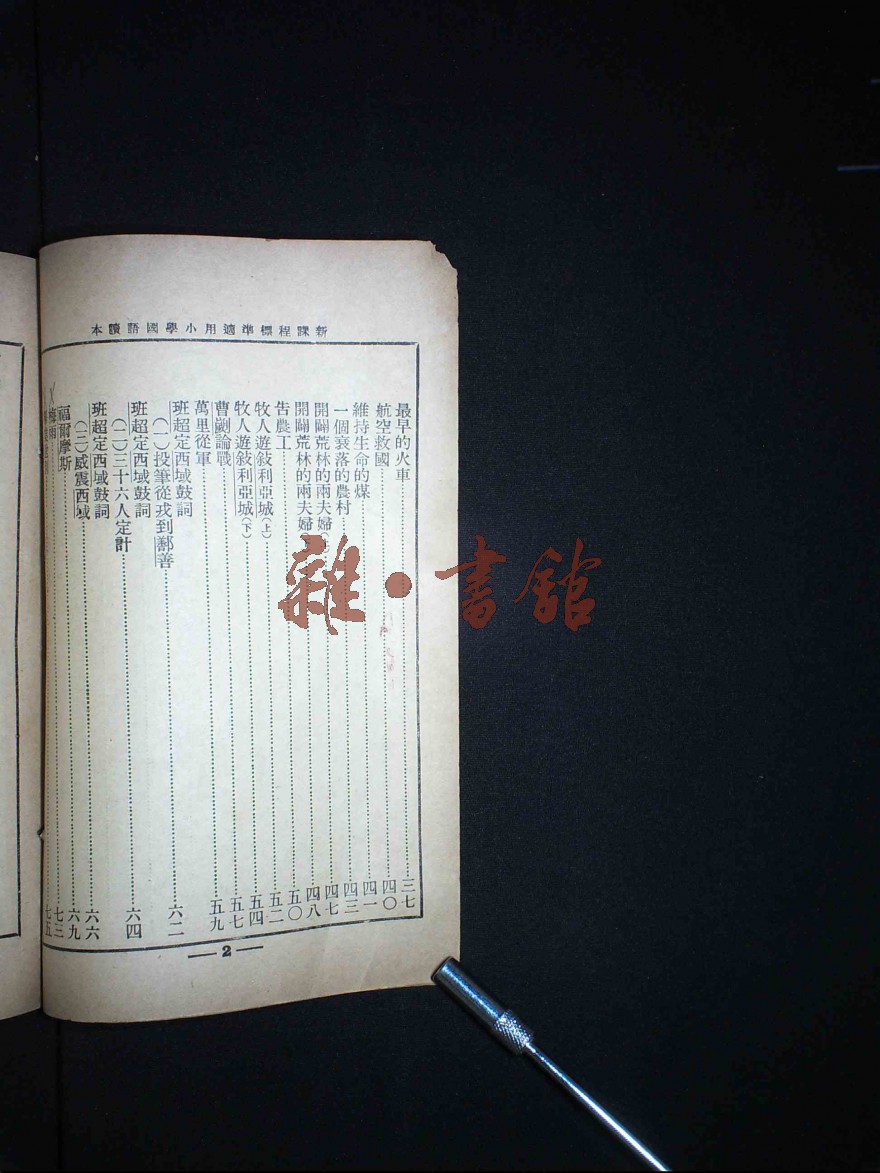 新課程標準適用小學國語讀本
最早的火車 三七
航空救國 四〇
維持生命的煤 四一
一個衰落的農村 四三
開闢荒林的兩夫婦 四七
開闢荒林的兩夫婦 四八
告農工 五〇
牧人遊敍利亞城(上) 五二
牧人遊敍利亞城(下) 五四
曹劌論戰 五七
萬里從軍 五九
班超定西域鼓詞
(一)投筆從戎到鄯善 六二
班超定西域鼓詞
(二)三十六人定計 六四
班超定西域鼓詞
(三)威震西域 六六
福爾摩斯 六九
梅雨 七三
七五
— 2 —
雜·書館